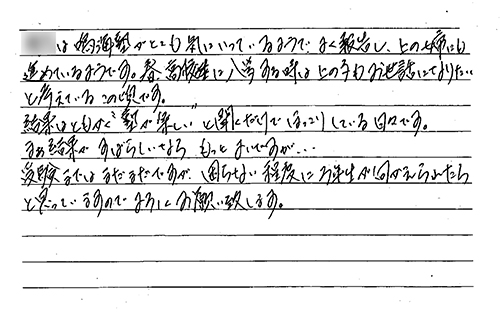 は 塾がとても気にいっているようで、よく報告し、上の姉にも
進めているようです。春 高校生に入学する時は上の子もお世話になりたい
と考えているこの頃です。
結果はともかく"塾が楽しい"と聞くだけでほっこりしている日々です。
まぁ結果がすばらしいなら もっとよいですが…
受験まではまだまだですが、困らない程度に 学生が向かえられたら
と思っていますのでよろしくお願い致します。